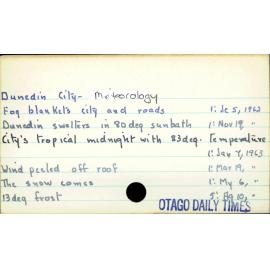 Dunedin City - Meteorology
Fog blankets city and roads 1: Je 5, 1963
Dunedin swelters in 80 deg sunbath 1: Nov 19, "
City's tropical midnight with 83 deg. Temperature
1: Jan 7, 1963
Wind peeled off roof 1: Mar 19, "
The snow comes 1: My 6, "
13 deg frost 5: Ag 10, "
OTAGO DAILY TIMES